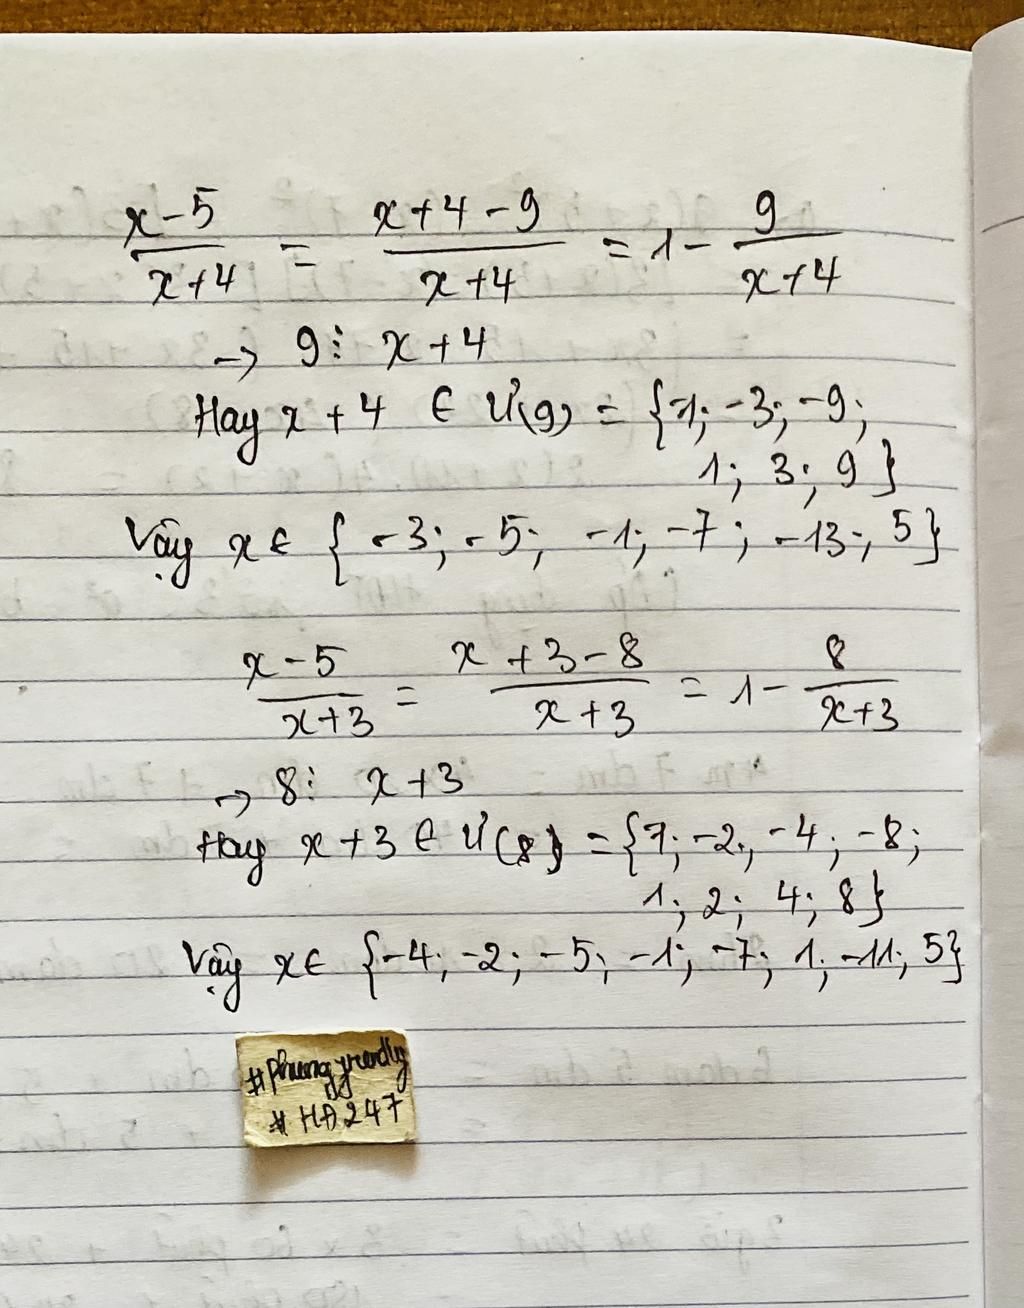 x-5/x+4 = x+4-9/x+4 = 1 - 9/x+4
→ 9 ⋮ x+4
Hay x+4 ∈ Ư(9) = {-1; -3; -9;
1; 3; 9}
Vậy x ∈ {-3; -5; -1; -7; -13; 5}
x-5/x+3 = x+3-8/x+3 = 1 - 8/x+3
→ 8 ⋮ x+3
Hay x+3 ∈ Ư(8) = {-1; -2; -4; -8;
1; 2; 4; 8}
Vậy x ∈ {-4; -2; -5; -1; -7; 1; -11; 5}
# HĐ247